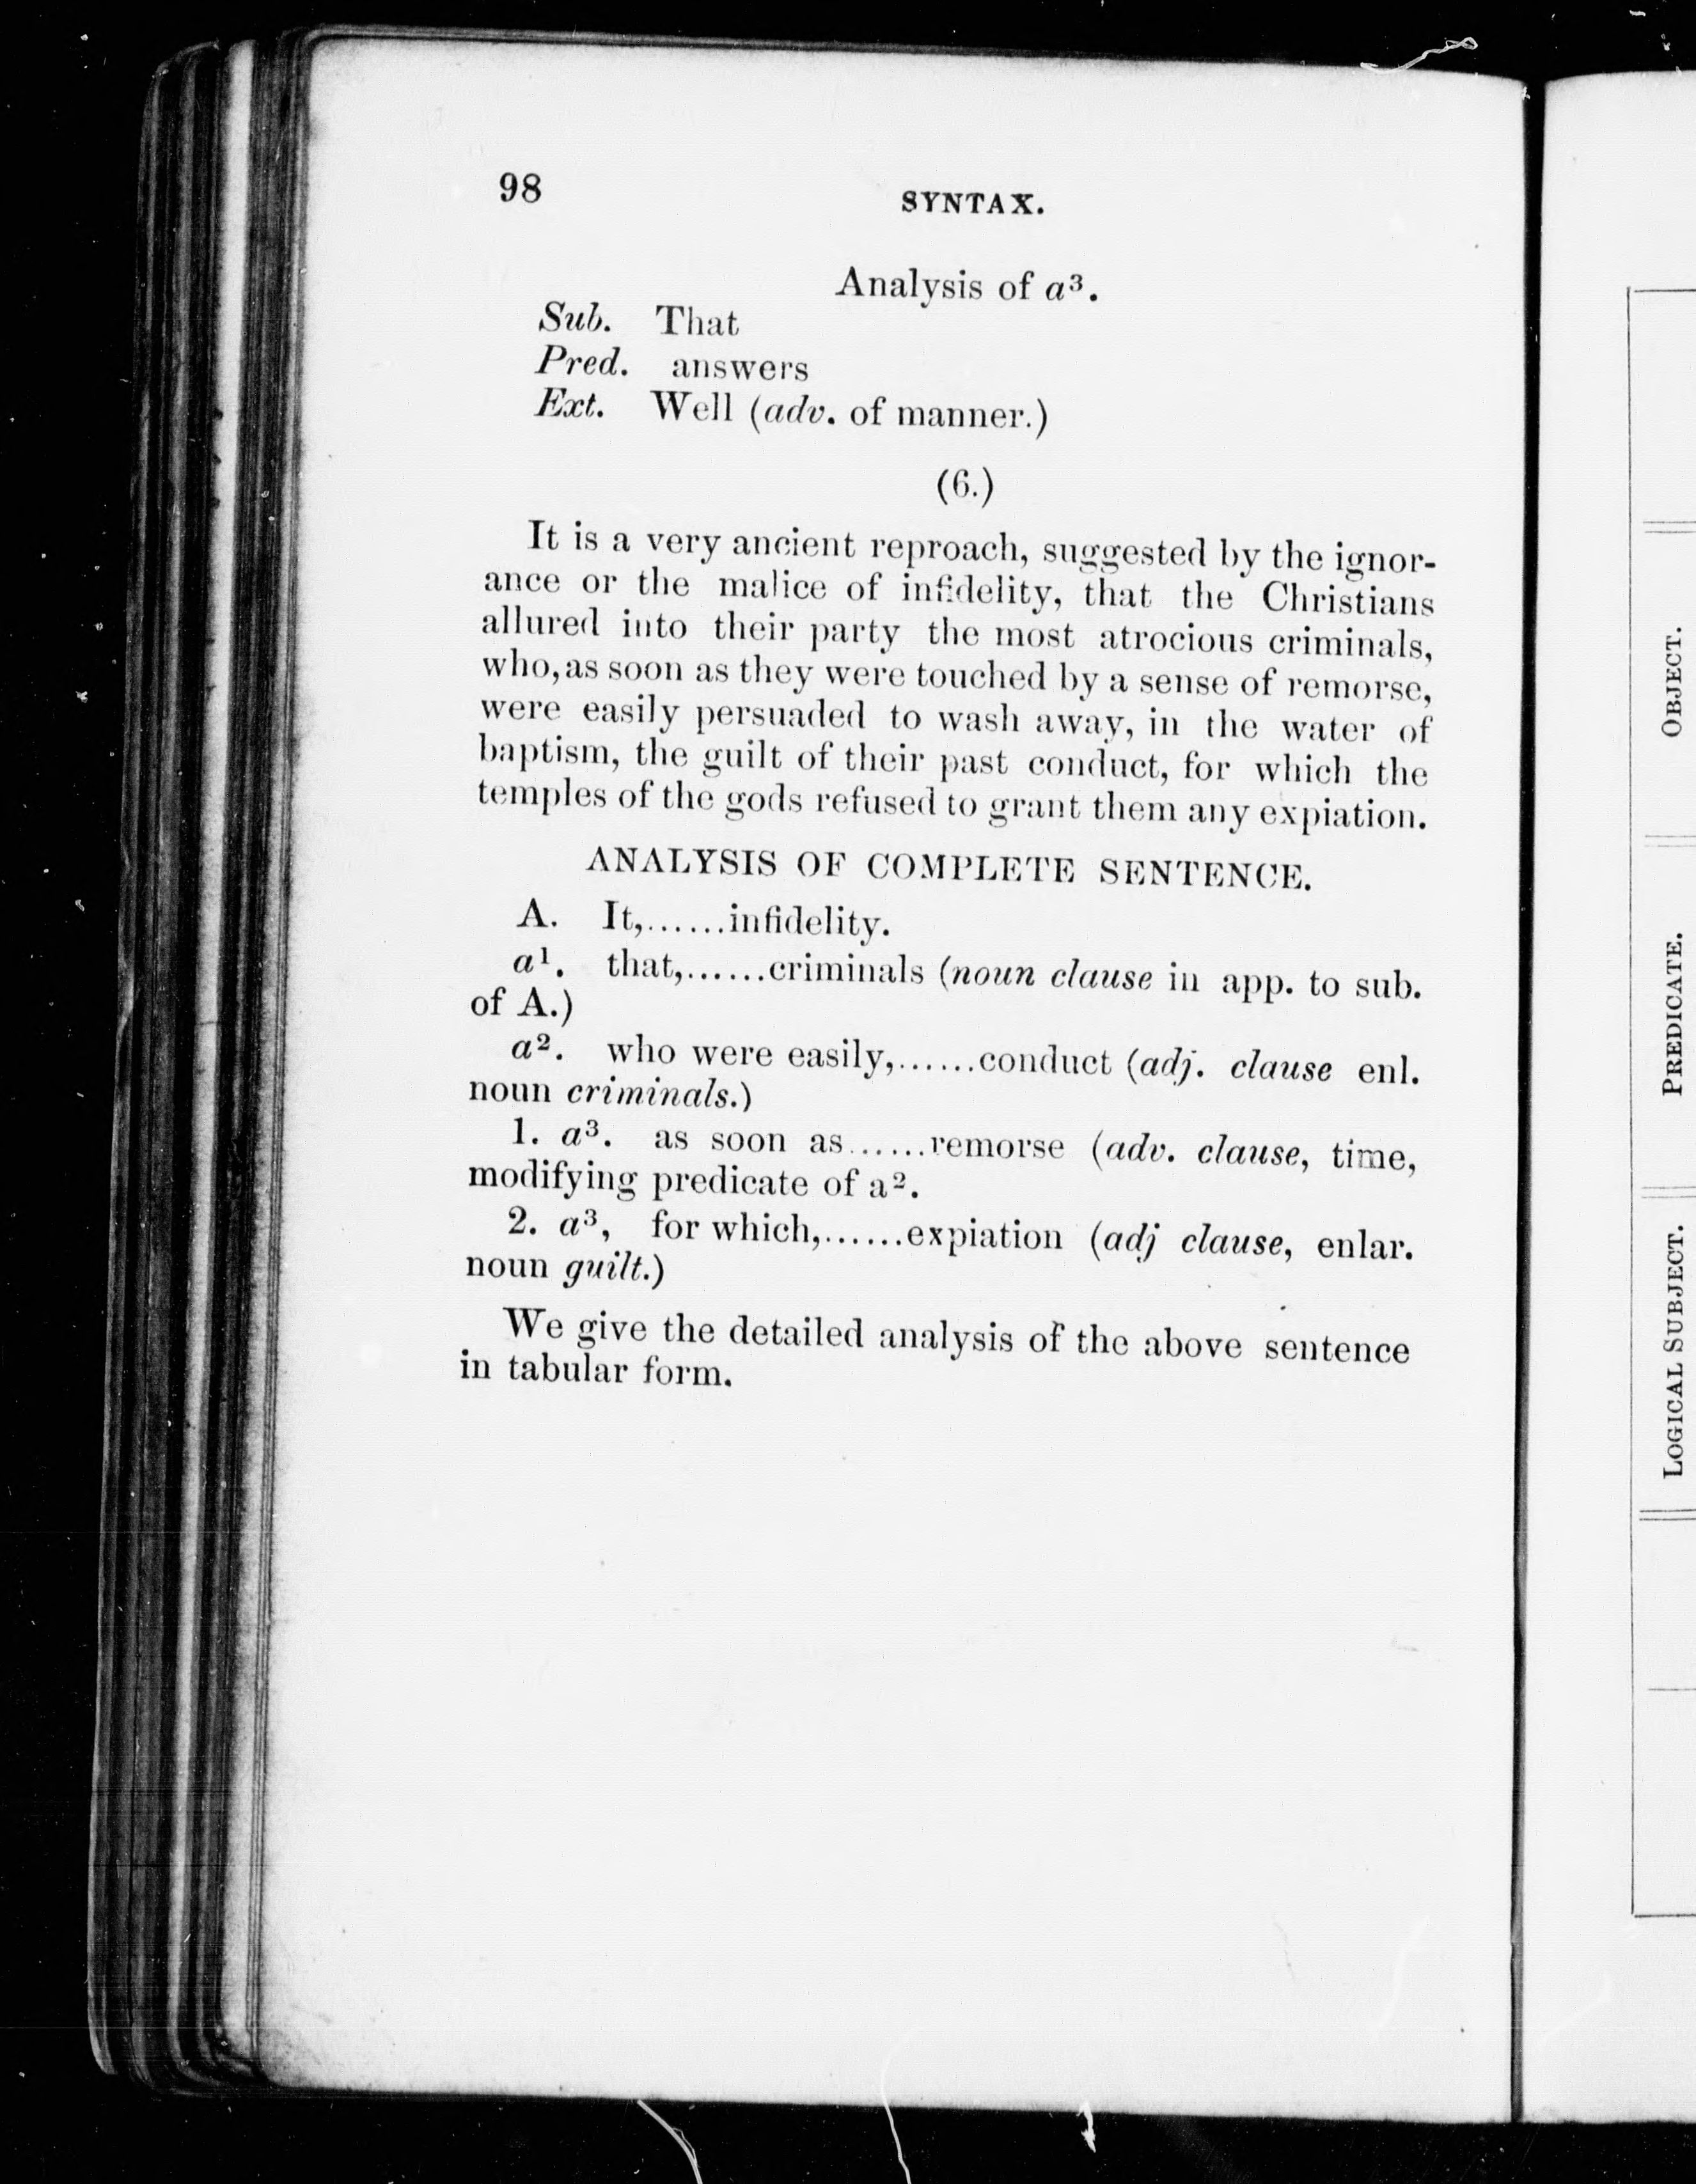 98
SYNTAX.
Analysis of a³.
Sub. That
Pred. answers
Ext. Well (adv. of manner.)
(6.)
It is a very ancient reproach, suggested by the ignor-
ance or the malice of infidelity, that the Christians
allured into their party the most atrocious criminals,
who, as soon as they were touched by a sense of remorse,
were easily persuaded to wash away, in the water of
baptism, the guilt of their past conduct, for which the
temples of the gods refused to grant them any expiation.
ANALYSIS OF COMPLETE SENTENCE.
A. It,......infidelity.
a¹. that,......criminals (noun clause in app. to sub.
of A.)
a². who were easily,......conduct (adj. clause enl.
noun criminals.)
1. a³. as soon as......remorse (adv. clause, time,
modifying predicate of a².
2. a³, for which,......expiation (adj clause, enlar.
noun guilt.)
We give the detailed analysis of the above sentence
in tabular form.
OBJECT.
PREDICATE.
LOGICAL SUBJECT.